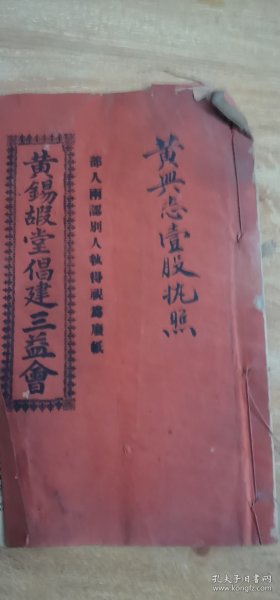 黃興忠壹股执照
部人兩認別人執得視為廢紙
黃錫嘏堂倡建三益會
孔夫子旧书网
www.kongfz.com